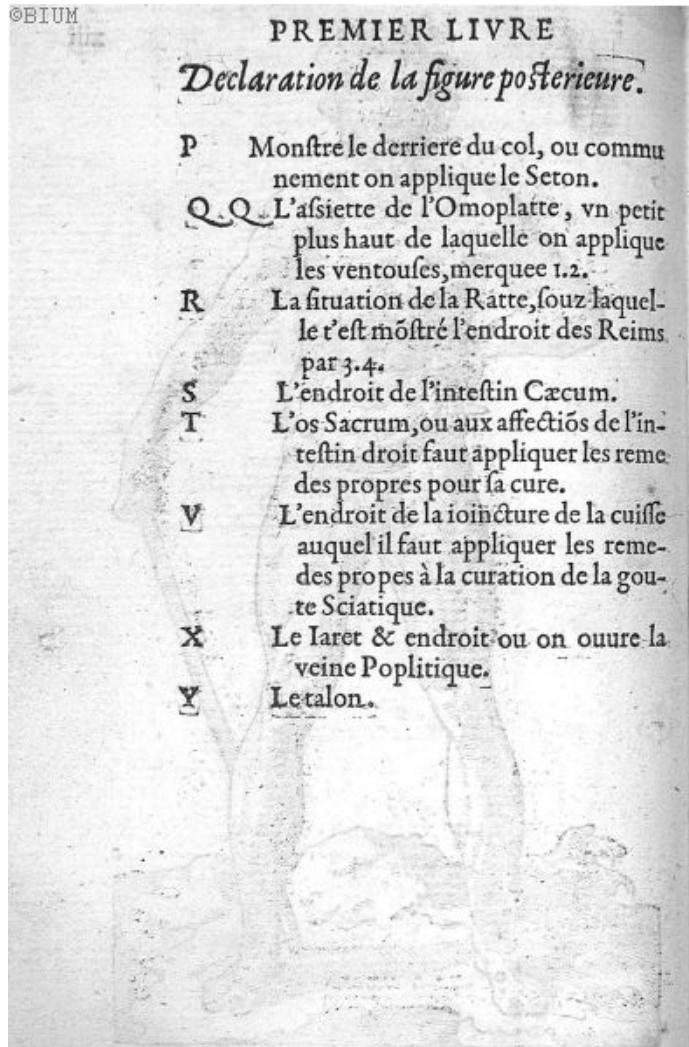 ©BIUM
PREMIER LIVRE
Declaration de la figure posterieure.
P Monſtre le derriere du col, ou commu
nement on applique le Seton.
Q Q L'aſsiette de l'Omoplatte, vn petit
plus haut de laquelle on applique
les ventouſes, merquee 1.2.
R La ſituation de la Ratte, ſouz laquel-
le t'eſt mõſtré l'endroit des Reims
par 3.4.
S L'endroit de l'inteſtin Cæcum.
T L'os Sacrum, ou aux affectiõs de l'in-
teſtin droit faut appliquer les reme
des propres pour ſa cure.
V L'endroit de la ioincture de la cuiſſe
auquel il faut appliquer les reme-
des propes à la curation de la gou-
te Sciatique.
X Le Iaret & endroit ou on ouure la
veine Poplitique.
Y Le talon.